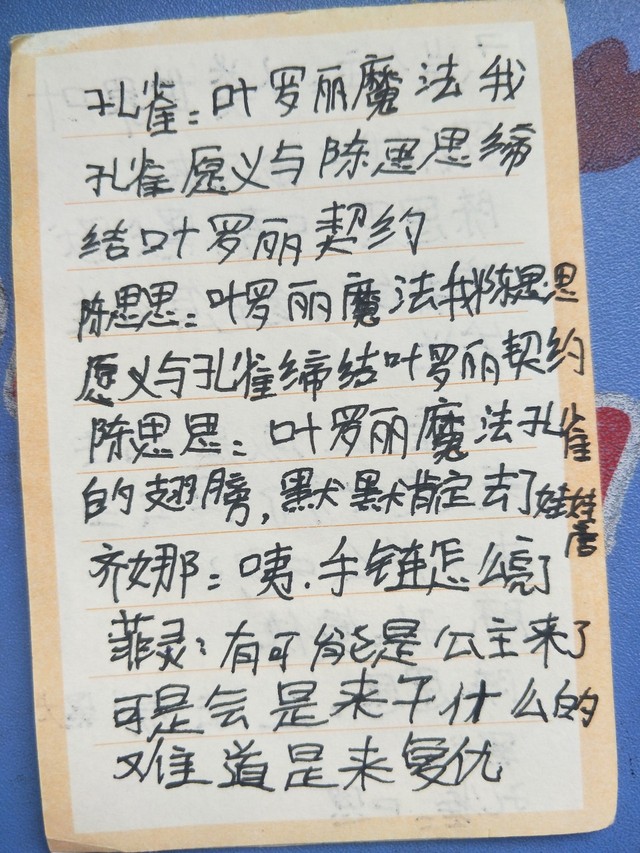 孔雀：叶罗丽魔法我
孔雀愿义与陈思思缔
结叶罗丽契约
陈思思：叶罗丽魔法我陈思思
愿义与孔雀缔结叶罗丽契约
陈思思：叶罗丽魔法孔雀
的翅膀，默默肯定去了娃娃店
齐娜：咦.手链怎么亮了
菲灵：有可能是公主来了
可是会是来干什么的
难道是来复仇